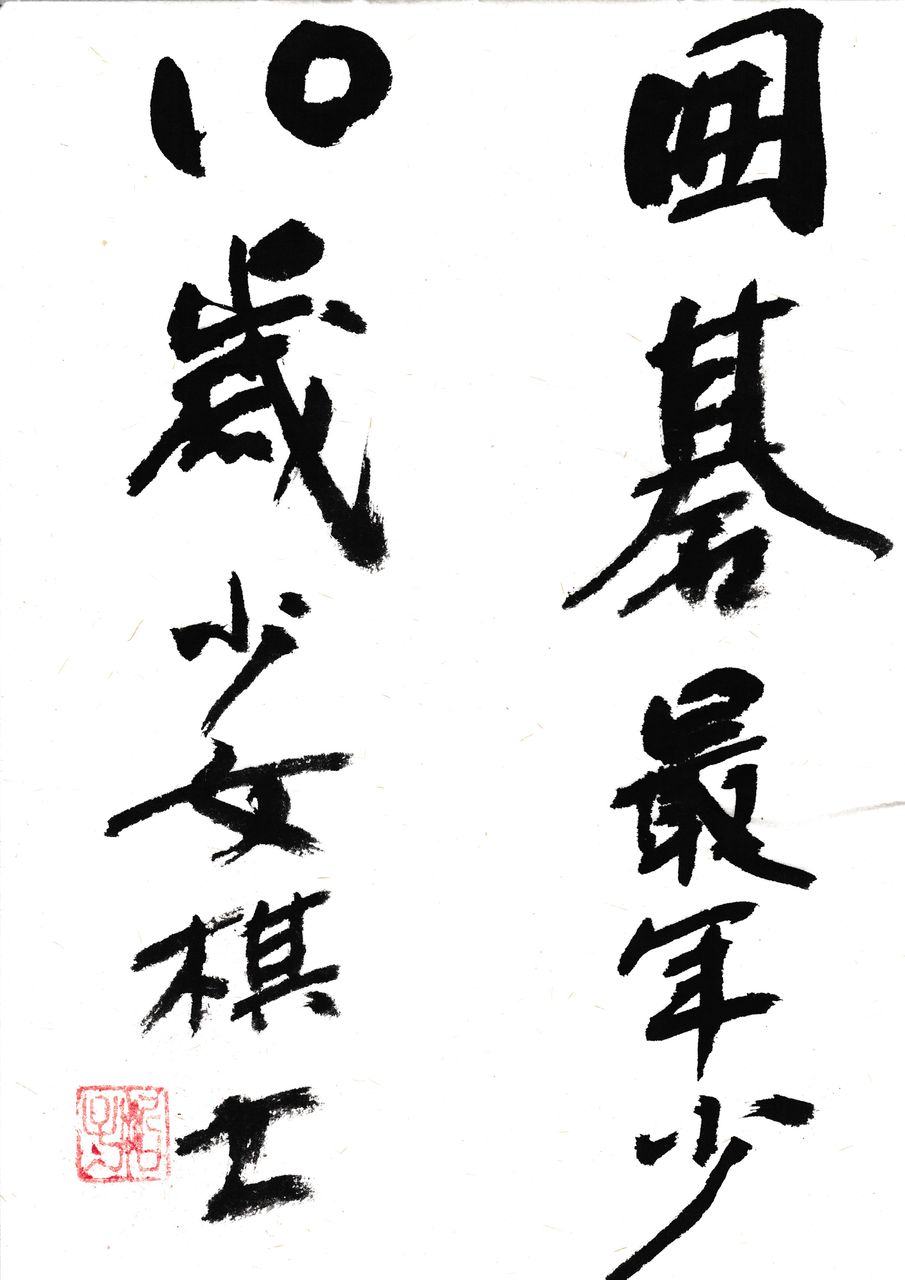 囲碁最年少
10歳少女棋士